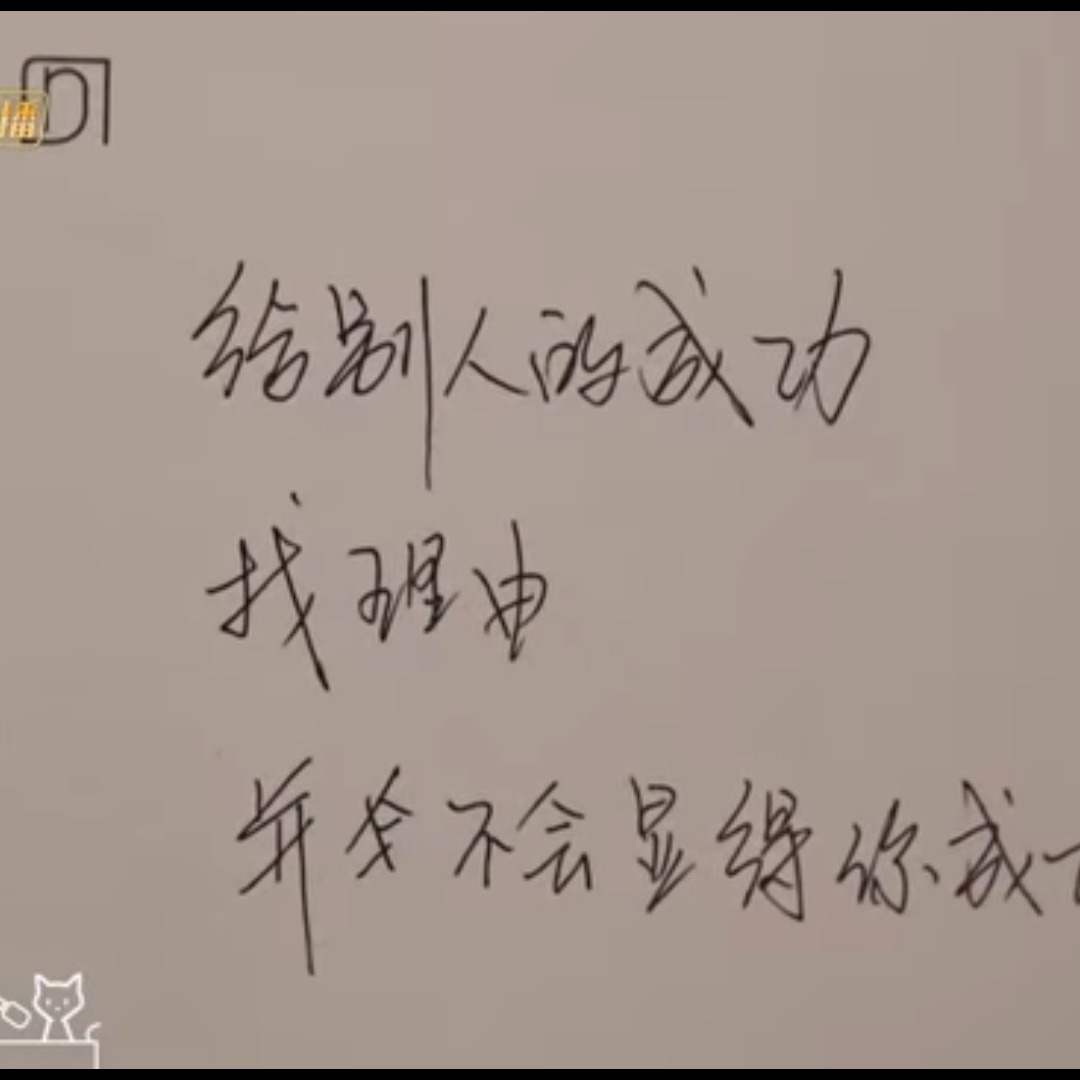 播
给别人的成功
找理由
并不会显得你成